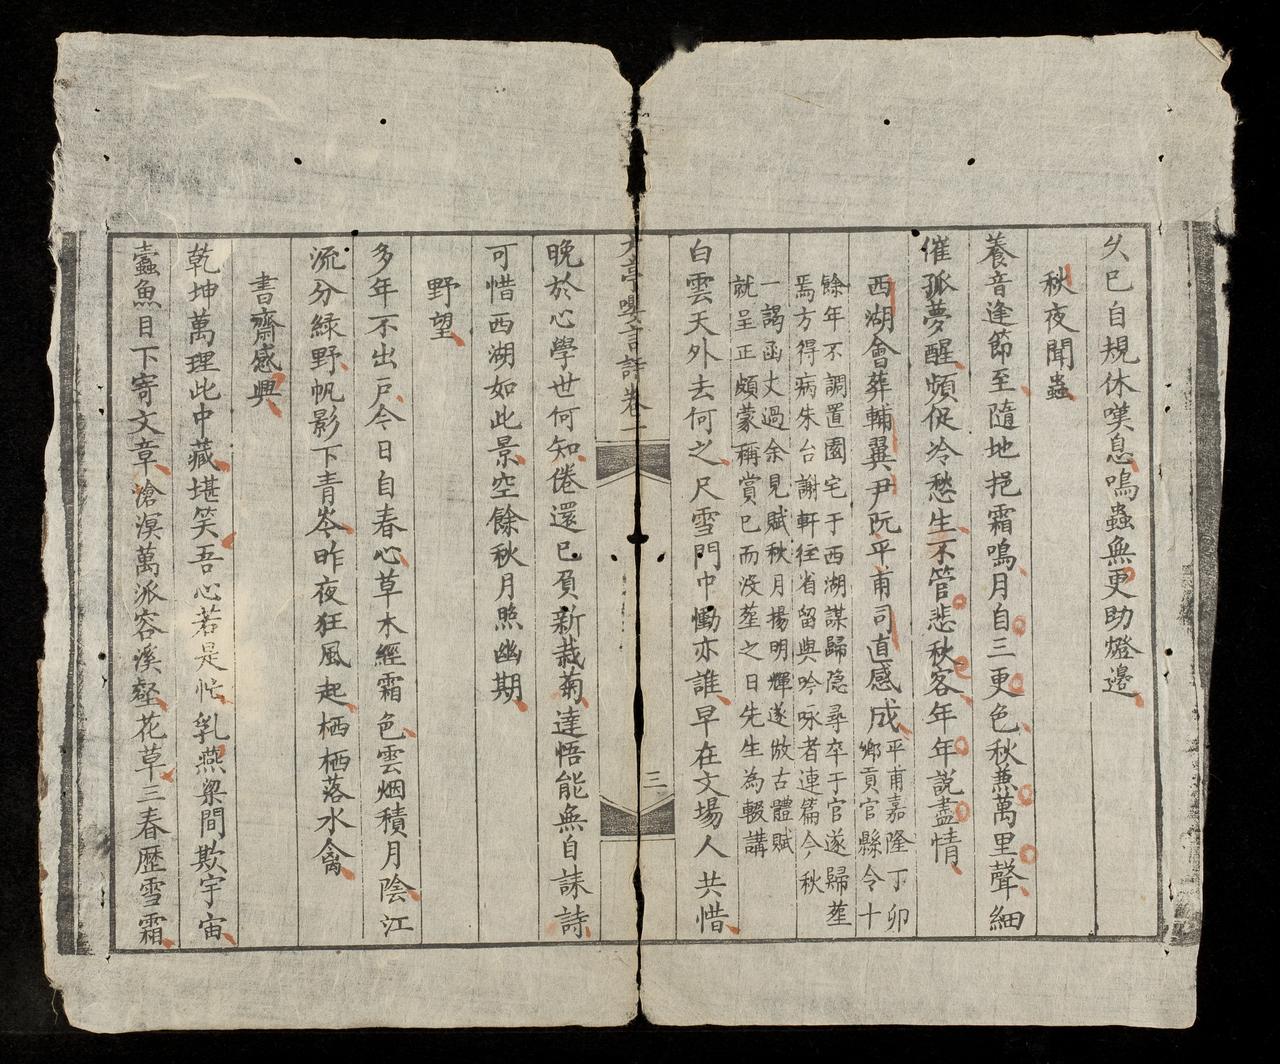 久已自規休嘆息鳴蟲無更助燈邊
秋夜聞蟲
養音逢節至隨地挹霜鳴月自三更色秋兼萬里聲細
催孤夢醒頻促冷愁生不管悲秋客年年說盡情
西湖會葬輔翼尹阮平甫司直感成平甫嘉隆丁卯
鄉貢官縣令十
餘年不調置園宅于西湖謀歸隐尋卒于官遂歸葬
焉方得病朱台謝軒往省留與吟咏者連篇今秋
一謁函丈過余見賦秋月揚明輝遂倣古體賦
就呈正頗蒙稱賞已而没葬之日先生為輟講
白雲天外去何之尺雪門中慟亦誰早在文場人共惜
亭言詩卷一
三
晚於心學世何知倦還已負新栽菊達悟能無自誄詩
可惜西湖如此景空餘秋月照幽期
野望
多年不出戶今日自春心草木經霜色雲烟積月陰江
流分綠野帆影下青岑昨夜狂風起栖栖落水禽
書齋感興
乾坤萬理此中藏堪笑吾心若是忙乳燕梁間欺宇宙
蠹魚目下寄文章滄溟萬派容溪壑花草三春歷雪霜